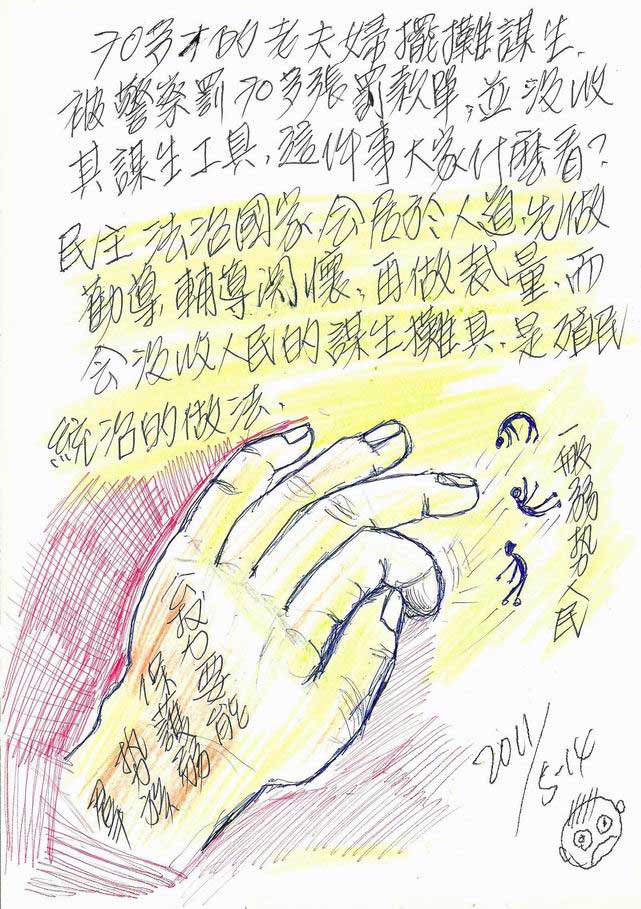 70多才的老夫婦擺攤謀生.
被警察罰70多張罰款單,並没收
其謀生工具,這件事大家什麼看?
民主法治國家会居於人道先做
勸導,輔導関懷,再做裁量,而
会没收人民的謀生攤具,是殖民
統治的做法.
一般弱势人民
公权力要能
保護弱
势族
2011/5-14